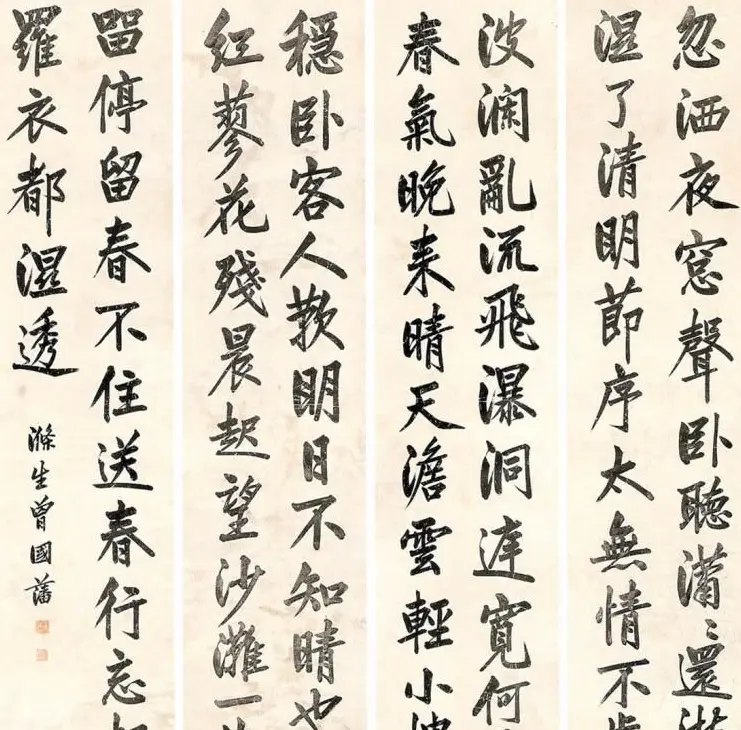 忽洒夜窓聲臥聽瀟瀟還
濕了清明節序太無情不
波瀾亂流飛瀑洞達寬何
春氣晚來晴天澹雲輕小
穩臥客人歎明日不知晴也
紅蓼花殘晨起望沙灘一
留停留春不住送春行忘
羅衣都濕透
滌生曾國藩